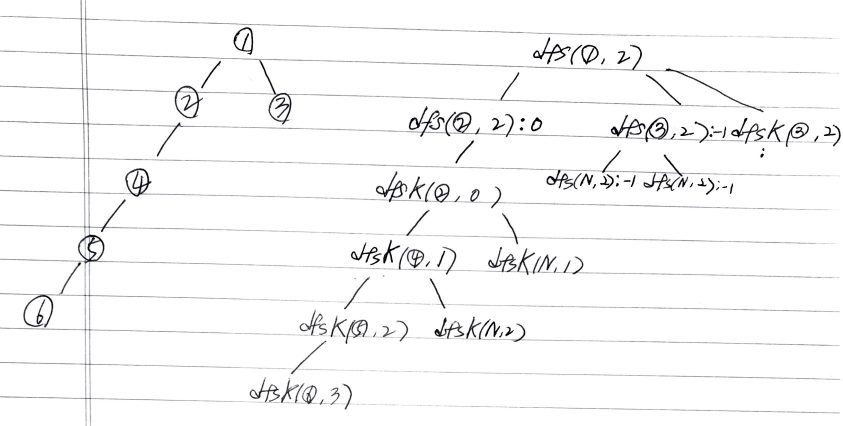 ①
② ③
④
⑤
⑥
dfs(①, 2)
dfs(②, 2):0 dfs(③, 2):-1 dfsK(③, 2)
:
dfsK(②, 0) dfs(N, 2):-1 dfs(N, 2):-1
dfsK(④, 1) dfsK(N, 1)
dfsK(⑤, 2) dfsK(N, 2)
dfsK( , 3)